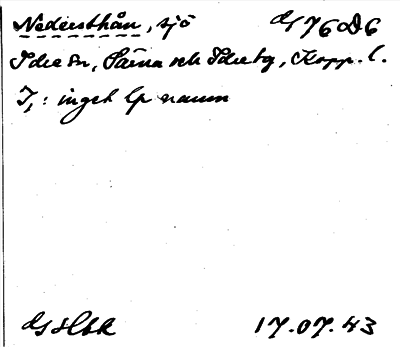 Nedersthån, sjö 76D6
Idre sn, Särna och Idre tg, Kopp. l.
I,: inget lp namn
17.07.43